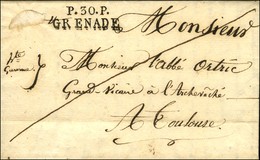 P.30.P.
GRENADE
Monsieur
Monsieur l'abbé Ortric
Grand-Vicaire à l'Archevêché
A Toulouse.